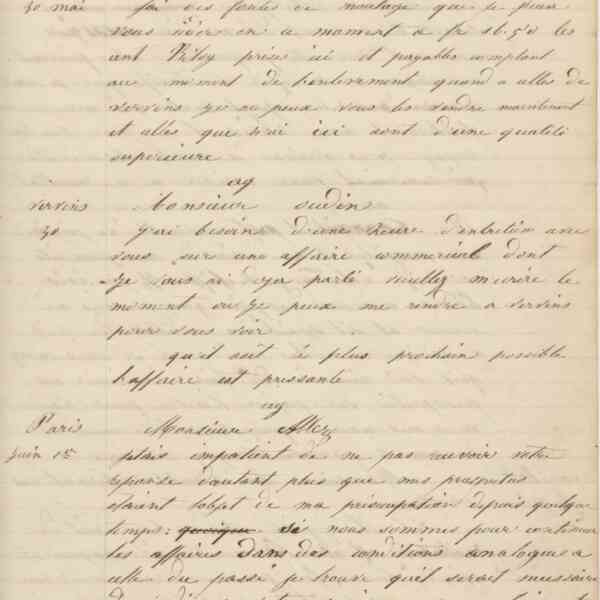 30 mai j'ai des fontes de moulage que je peux
vous céder en ce moment a fr 16.50 les
cent Kilog prises ici et payables comptant
au moment de l'enlevement quand a celles de
vervins je ne peux vous les vendre maintenant
et celles que j'ai ici sont d'une qualité
superieure
ag
vervins Monsieur sudin
30 j'ai besoin d'une heure d'entretien avec
vous sur une affaire commerciale dont
je vous ai deja parlé veuillez m'ecrire le
moment ou je peux me rendre a vervins
pour vous voir
qu'il soit le plus prochain possible
l'affaire est pressante
ag
Paris Monsieur Allez
Juin 15 j'etais impatient de ne pas recevoir votre
reponse d'autant plus que mes
etaient l'objet de ma préocupation depuis quelque
temps: quoique si nous sommes pour continuer
les affaires dans des conditions analogues a
celle du passé je trouve qu'il serait necessaire